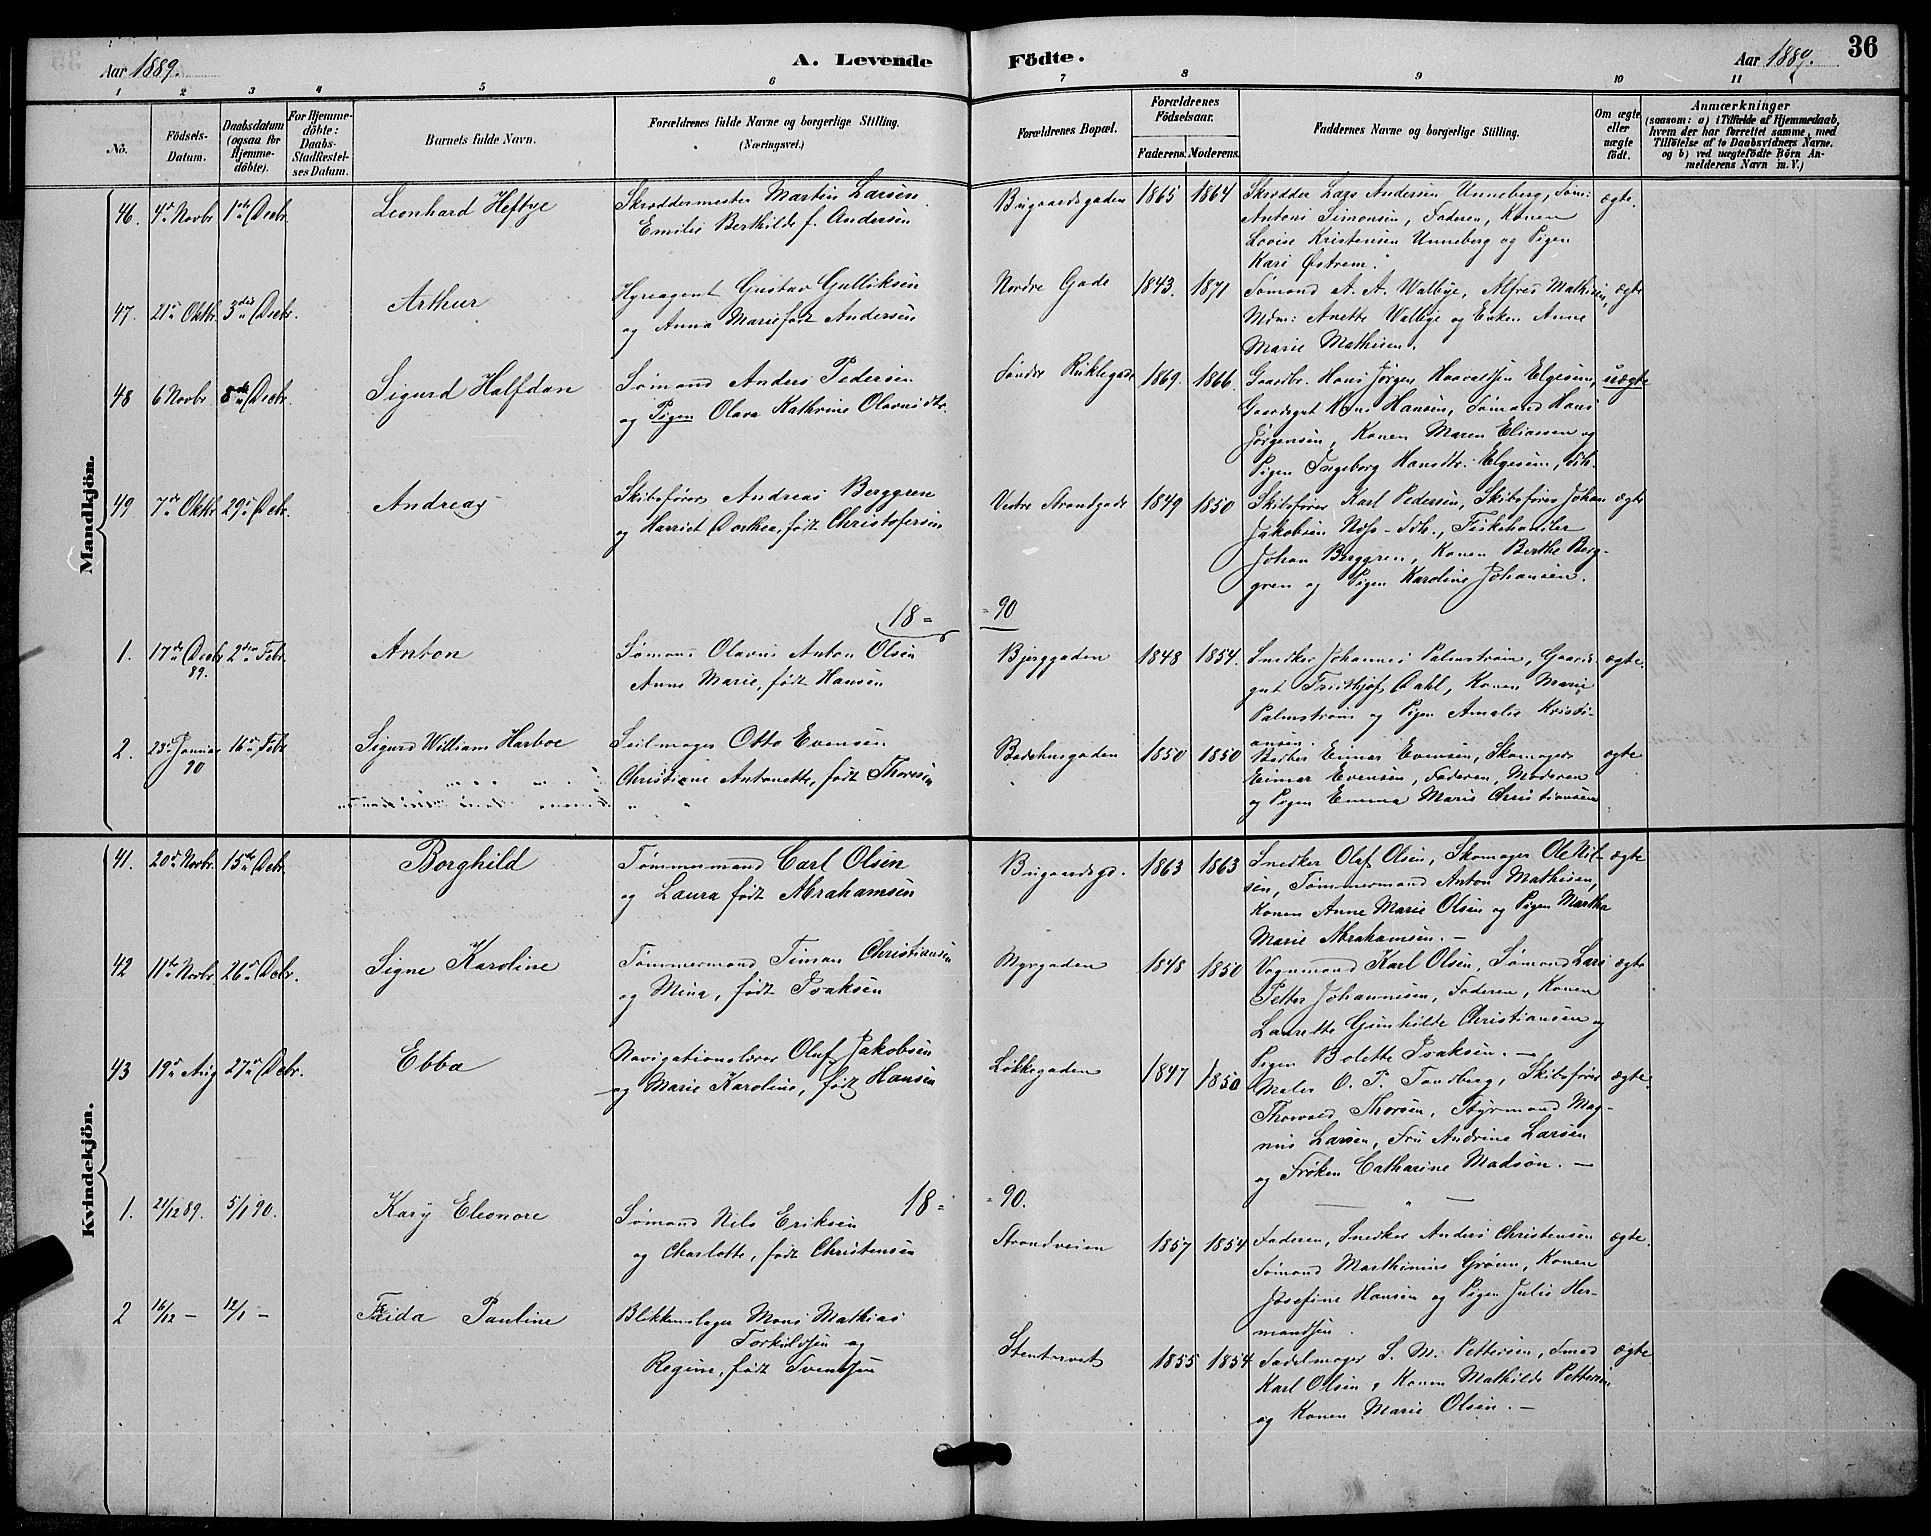 36
Aar 1889.
A. Levende
Födte.
Aar 1889.
1 2 3 4 5 6 7 8 9 10 11
No.
Födsels-Datum.
Daabsdatum (ogsaa for Hjemme-döbte).
For Hjemme-döbte: Daabs-Stadfæstel-ses Datum.
Barnets fulde Navn.
Forældrenes fulde Navne og borgerlige Stilling.
(Næringsvei.)
Forældrenes Bopæl.
Forældrenes Födselsaar.
Faderens. Moderens.
Faddernes Navne og borgerlige Stilling.
Om ægte eller uægte födt.
Anmærkninger
(saasom: a) i Tilfælde af Hjemmedaab,
hvem der har forrettet samme, med
Tilföielse af to Daabsvidners Navne,
og b) ved uægtefödte Börn An-
melderens Navn m. V.)
Mandkjön.
46. 4de Novbr. 1ste Decbr. Leonhard Heftye
Skræddermester Martin Larsen
Emilie Berthilde f. Andersen
Bugaardsgaden 1865 1864
Skrædder Lars Andersen Unneberg, Søm:
Anton Simonsen, Faderen, Konen
Lovise Kristensen Unneberg og Pigen
Kari Østrem.
ægte.
47. 21de Oktbr. 3die Decbr. Arthur
Hyreagent Gustav Gulliksen
og Anna Marie født Andersen
Nordre Gade 1843. 1871
Sømand A. A. Walbye, Alfred Mathisen,
Mdm: Anette Walbye og Enken Anne
Marie Mathisen.
ægte
48 6 Novbr. 8de Decbr. Sigurd Halfdan
Sømand Anders Pedersen
og Pigen Olava Kathrine Olavusdtr.
Søndre 1869. 1866.
Gaardbr. Hans Jørgen Haavaldsen Elgesem,
Gaardsgut Hans Hansen, Sømand Hans
Jørgensen, Konen Maren Eliassen og
Pigen Ingeborg Hansdtr. Elgesem, Sdh.
uægte
49 7de Oktbr 29de Debr. Andreas
Skibsfører Andreas Berggren
og Harriet Dorthea, født Christofersen
Vestre Strandgade 1849 1850
Skibsfører Karl Pedersen, Skibsfører Johan
Jakobsen Næss-Sdh., Fiskehandler
Johan Berggren, Konen Berthe Berg-
gren og Pigen Karoline Johansen.
ægte
18 = = 90
1. 17de Decbr 89. 2den Febr. Anton
Sømand Olavus Anton Olsen
Anne Marie, født Hansen
Bjerggaden 1848 1854.
Snedker Johannes Palmstrøm, Gaards-
gut Fridthjof Dahl, Konen Marie
Palmstrøm og Pigen Amalie Kristi-
ansen.
ægte.
2. 23de Januar 90 16de Febr Sigurd William Harboe
Seilmager Otto Evensen
Christiane Antonette, født Thoresen
Badehusgaden 1850 1850
Einar Evensen, Skomager
Einar Evensen, Faderen, Moderen
og Pigen Emma Marie Christiansen
ægte
Kvindekjön.
41. 20de Novbr. 15de Debr. Borghild
Tømmermand Carl Olsen
og Laura født Abrahamsen
Bugaardsgd. 1863 1863
Snedker Olaf Olsen, Skomager Ole Niel-
sen, Tømmermand Anton Mathisen,
Konen Anne Marie Olsen og Pigen Martha
Marie Abrahamsen. —
ægte
42 11te Novbr. 26de Debr. Signe Karoline
Tømmermand Timan Christiansen
og Mina, født Isaksen
Myrgaden 1848 1850
Vognmand Karl Olsen, Sømand Lars
Petter Johannesen, Faderen, Konen
Laurette Gunhilde Christiansen og
Pigen Bolette Isaksen. —
ægte
43 19de Aug 27de Debr. Ebba
Navigationslærer Oluf Jakobsen
og Marie Karoline, født Hansen
Løkkegaden 1847 1850
Maler O. P. Tandberg, Skibsfører
Thorvald Thorsen, Styrmand Mag-
nus Larsen, Fru Andrine Larsen
og Frøken Catharine Madsen. —
ægte.
18 = = 90.
1. 21/12 89. 5/1 90. Kary Eleonore
Sømand Nils Eriksen
og Charlotte, født Christensen
Strandveien 1857 1854
Faderen, Snedker Anders Christensen
Sømand Marthinius Grøunn, Konen
Josefine Hansen og Pigen Julie Her-
mandsen.
ægte.
2 16/12 — 12/1 — Frida Pauline
Blikkenslager Mons Mathias
Torkildsen og
Regine, født Svendsen
Stentorvet 1855 1854
Sadelmager S. M. Pettersen, Smed
Karl Olsen, Konen Mathilde Pettersen
og Konen Marie Olsen. —
ægte